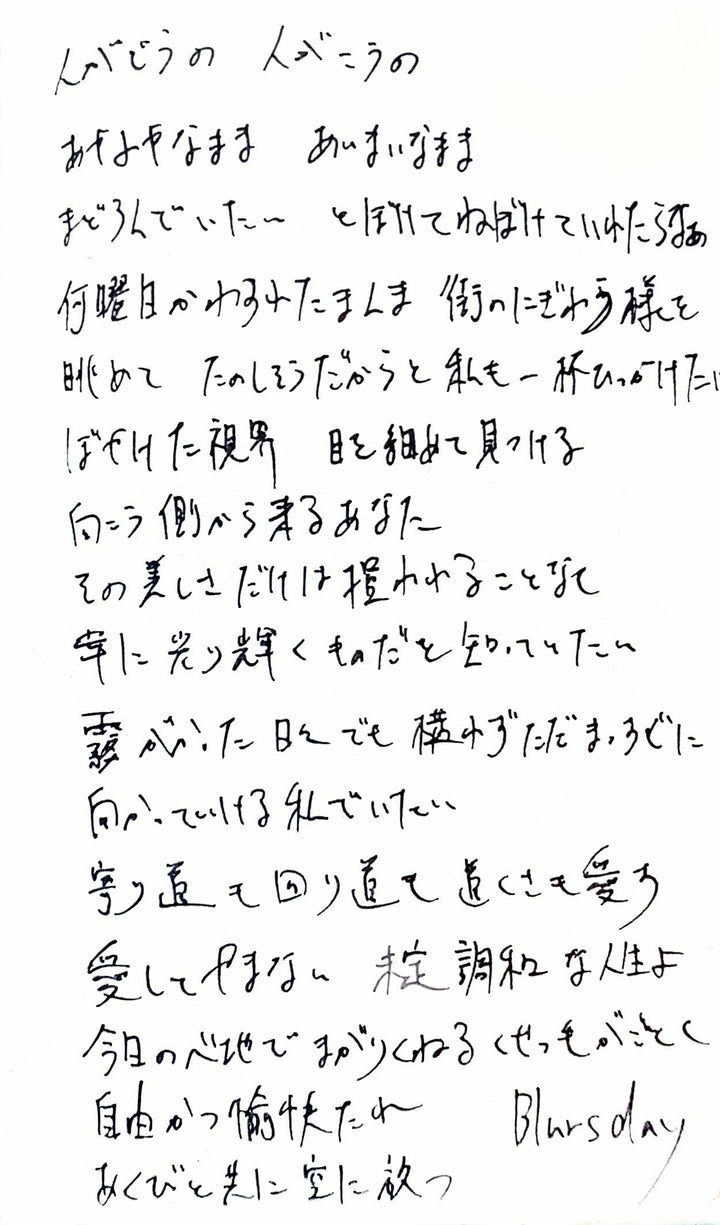 人がどうの 人がこうの
あやふやなまま あいまいなまま
まどろんでいたい とぼけてねぼけていれたらなぁ
何曜日かわすれたまんま 街のにぎわう様を
眺めて たのしそうだからと 私も一杯ひっかけたい
ぼやけた視界 目を細めて見つける
向こう側から来るあなた
その美しさだけは損われることなく
常に光り輝くものだと知っていたい
霧がかった日々でも 構わずただまっすぐに
向かっていける私でいたい
寄り道も回り道も 遠くさも愛す
愛してやまない 未定調和な人生よ
今日の心地で まがりくねるくせっ毛がごとく
自由かつ愉快たれ Blursday
あくびと共に空に放つ